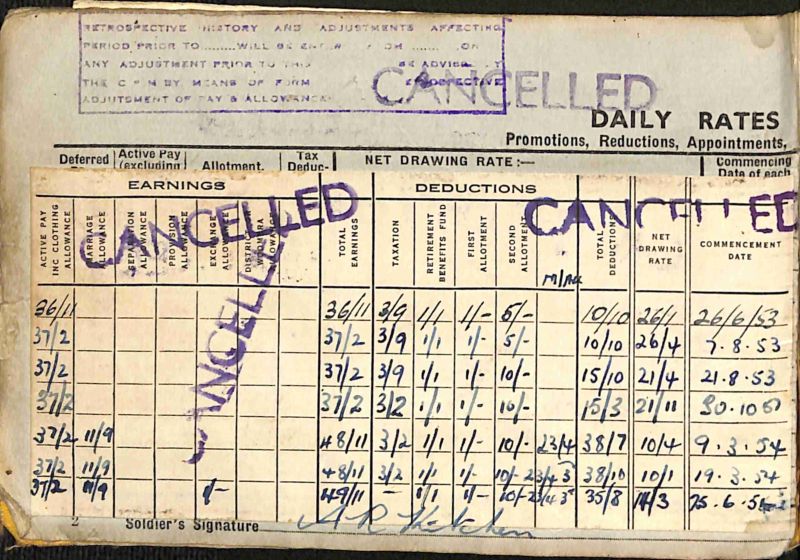 RETROSPECTIVE HISTORY AND ADJUSTMENTS AFFECTING
PERIOD PRIOR TO .......... WILL BE ON
ANY ADJUSTMENT PRIOR TO BE ADVISED BY
THE BY MEANS OF FORM
ADJUTSMENT OF PAY & ALLOWANCE
CANCELLED
DAILY RATES
Promotions, Reductions, Appointments,
Deferred Active Pay (excluding Allotment. Tax Deduc- NET DRAWING RATE :— Commencing Date of each
EARNINGS DEDUCTIONS
CANCELLED
CANCELLED
CANCELLED
ACTIVE PAY INC CLOTHING ALLOWANCE MARRIAGE ALLOWANCE SEPARATION ALLOWANCE PROVISION ALLOWANCE EXCHANGE ALLOWANCE DISTRICT WOOMERA ALLOWANCE TOTAL EARNINGS TAXATION RETIREMENT BENEFITS FUND FIRST ALLOTMENT SECOND ALLOTMENT M/All TOTAL DEDUCTIONS NET DRAWING RATE COMMENCEMENT DATE
36/11 36/11 3/9 1/1 1/- 5/- 10/10 26/1 26/6/53
37/2 37/2 3/9 1/1 1/- 5/- 10/10 26/4 7.8.53
37/2 37/2 3/9 1/1 1/- 10/- 15/10 21/4 21.8.53
37/2 37/2 3/2 1/1 1/- 10/- 15/3 21/11 30.10
37/2 11/9 48/11 3/2 1/1 1/- 10/- 23/4 38/7 10/4 9.3.54
37/2 11/9 48/11 3/2 1/1 1/- 10/- 38/10 10/1 19.3.54
37/2 11/9 1/- 49/11 - 1/1 1/- 10/- 35/8 14/3 25.6.54
2 Soldier's Signature A R Kitchen